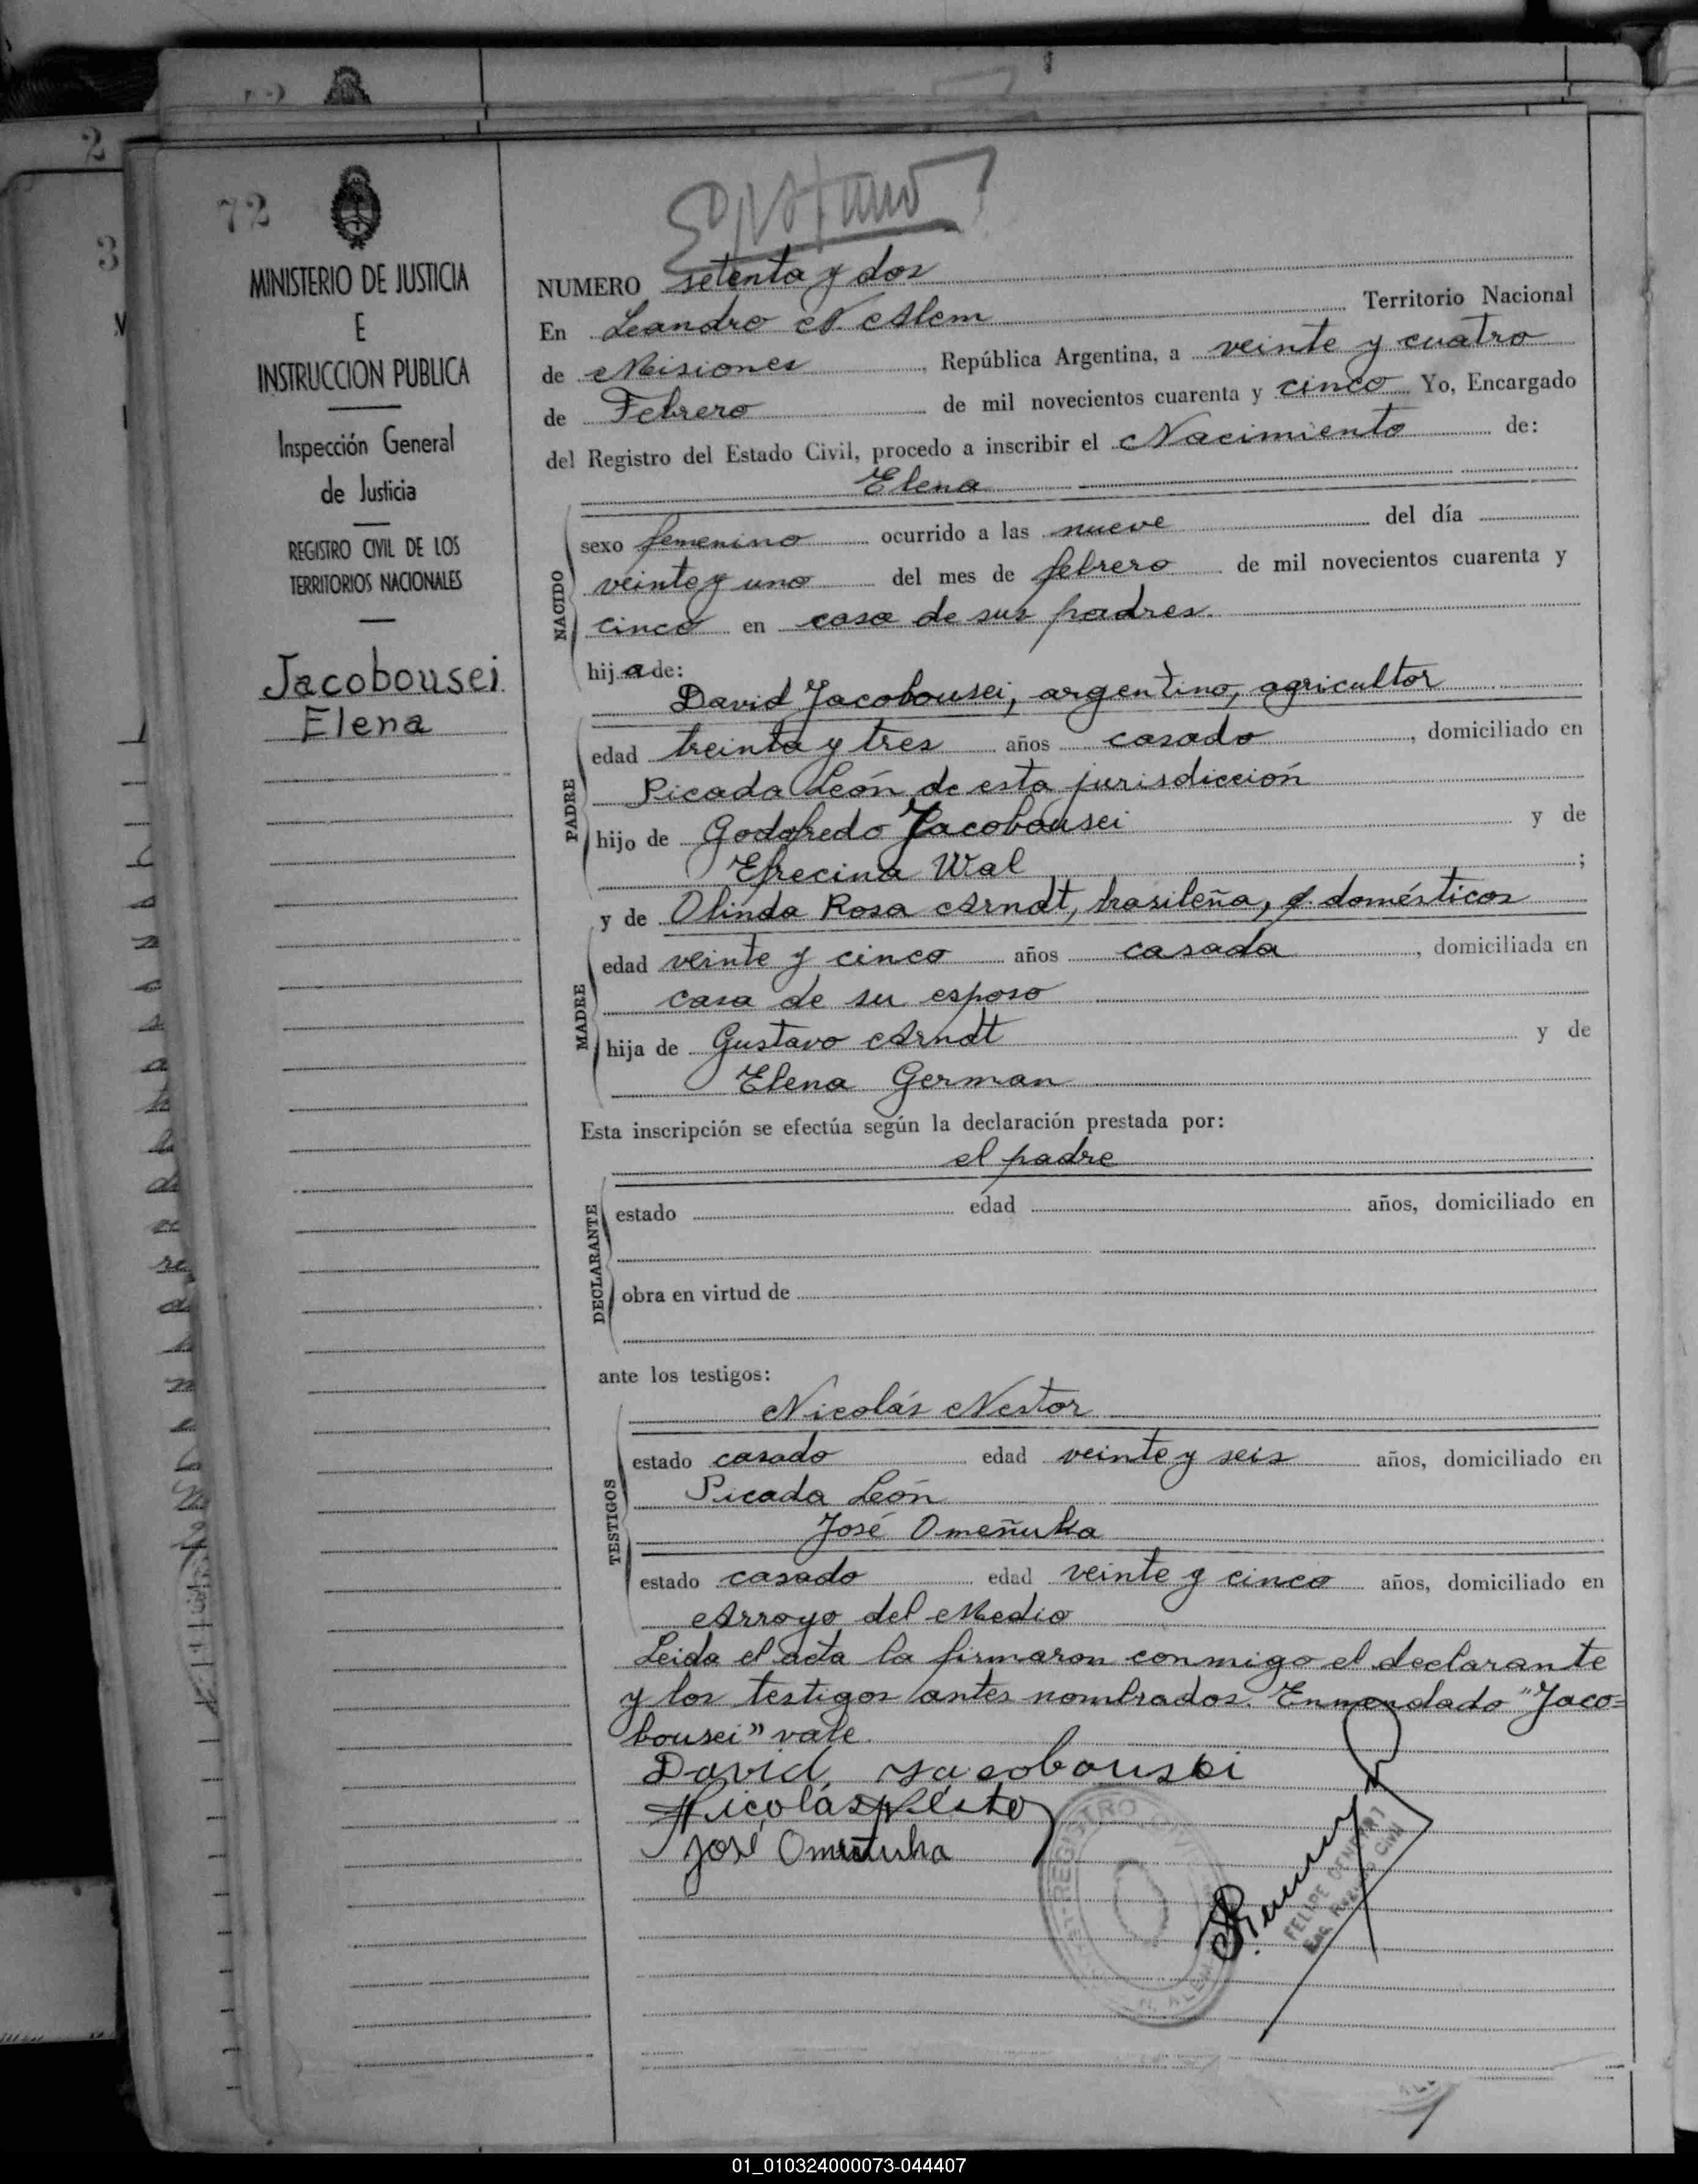 2
3
72
MINISTERIO DE JUSTICIA
E
INSTRUCCION PUBLICA
Inspección General
de Justicia
REGISTRO CIVIL DE LOS
TERRITORIOS NACIONALES
Jacobousei
Elena
NUMERO setenta y dos
En Leandro N. Alem Territorio Nacional
de Misiones, República Argentina, a veinte y cuatro
de Febrero de mil novecientos cuarenta y cinco Yo, Encargado
del Registro del Estado Civil, procedo a inscribir el Nacimiento de:
Elena
NACIDO
sexo femenino ocurrido a las nueve del día
veinte y uno del mes de febrero de mil novecientos cuarenta y
cinco en casa de sus padres.
hija de:
David Jacobousei, argentino, agricultor
PADRE
edad treinta y tres años casado, domiciliado en
Picada León de esta jurisdicción
hijo de Godofredo Jacobousei y de
Efrecina Wal;
y de Olinda Rosa Arndt, brasileña, q. domésticos
MADRE
edad veinte y cinco años casada, domiciliada en
casa de su esposo
hija de Gustavo Arndt y de
Elena German
Esta inscripción se efectúa según la declaración prestada por:
el padre
DECLARANTE
estado edad años, domiciliado en
obra en virtud de
ante los testigos:
Nicolás Nestor
TESTIGOS
estado casado edad veinte y seis años, domiciliado en
Picada León
José Omeñuka
estado casado edad veinte y cinco años, domiciliado en
Arroyo del Medio
Leida el acta la firmaron conmigo el declarante
y los testigos antes nombrados. Enmendado "Jaco=
bousei" vale.
David Jacobousei
Nicolás Néstor
José Omeñuka
REGISTRO CIVIL
N. ALEM
FELIPE
Enc. Registro Civil
01_010324000073-044407